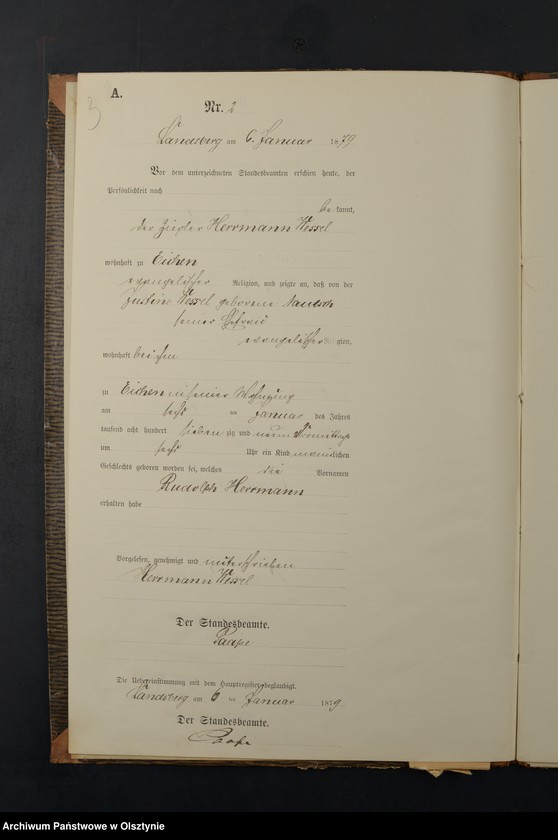 A.
3
Nr. 2
Landsberg am 6. Januar 1879
Vor dem unterzeichneten Standesbeamten erschien heute, der
Persönlichkeit nach
be kannt,
der Ziegler Herrmann Wessel
wohnhaft zu Eichen
evangelischer Religion, und zeigte an, daß von der
Justine Wessel geborene
seiner Ehefrau
evangelischer Religion,
wohnhaft bei ihm
zu Eichen in seiner Wohnung
am sechs ten Januar des Jahres
tausend acht hundert sieben zig und neun Vormittags
um sechs Uhr ein Kind männlichen
Geschlechts geboren worden sei, welches die Vornamen
Rudolph Herrmann
erhalten habe
Vorgelesen, genehmigt und unterschrieben
Herrmann Wessel
Der Standesbeamte.
Paape
Die Uebereinstimmung mit dem Hauptregister beglaubigt.
Landsberg am 6 ten Januar 1879
Der Standesbeamte.
Paape
Archiwum Państwowe w Olsztynie